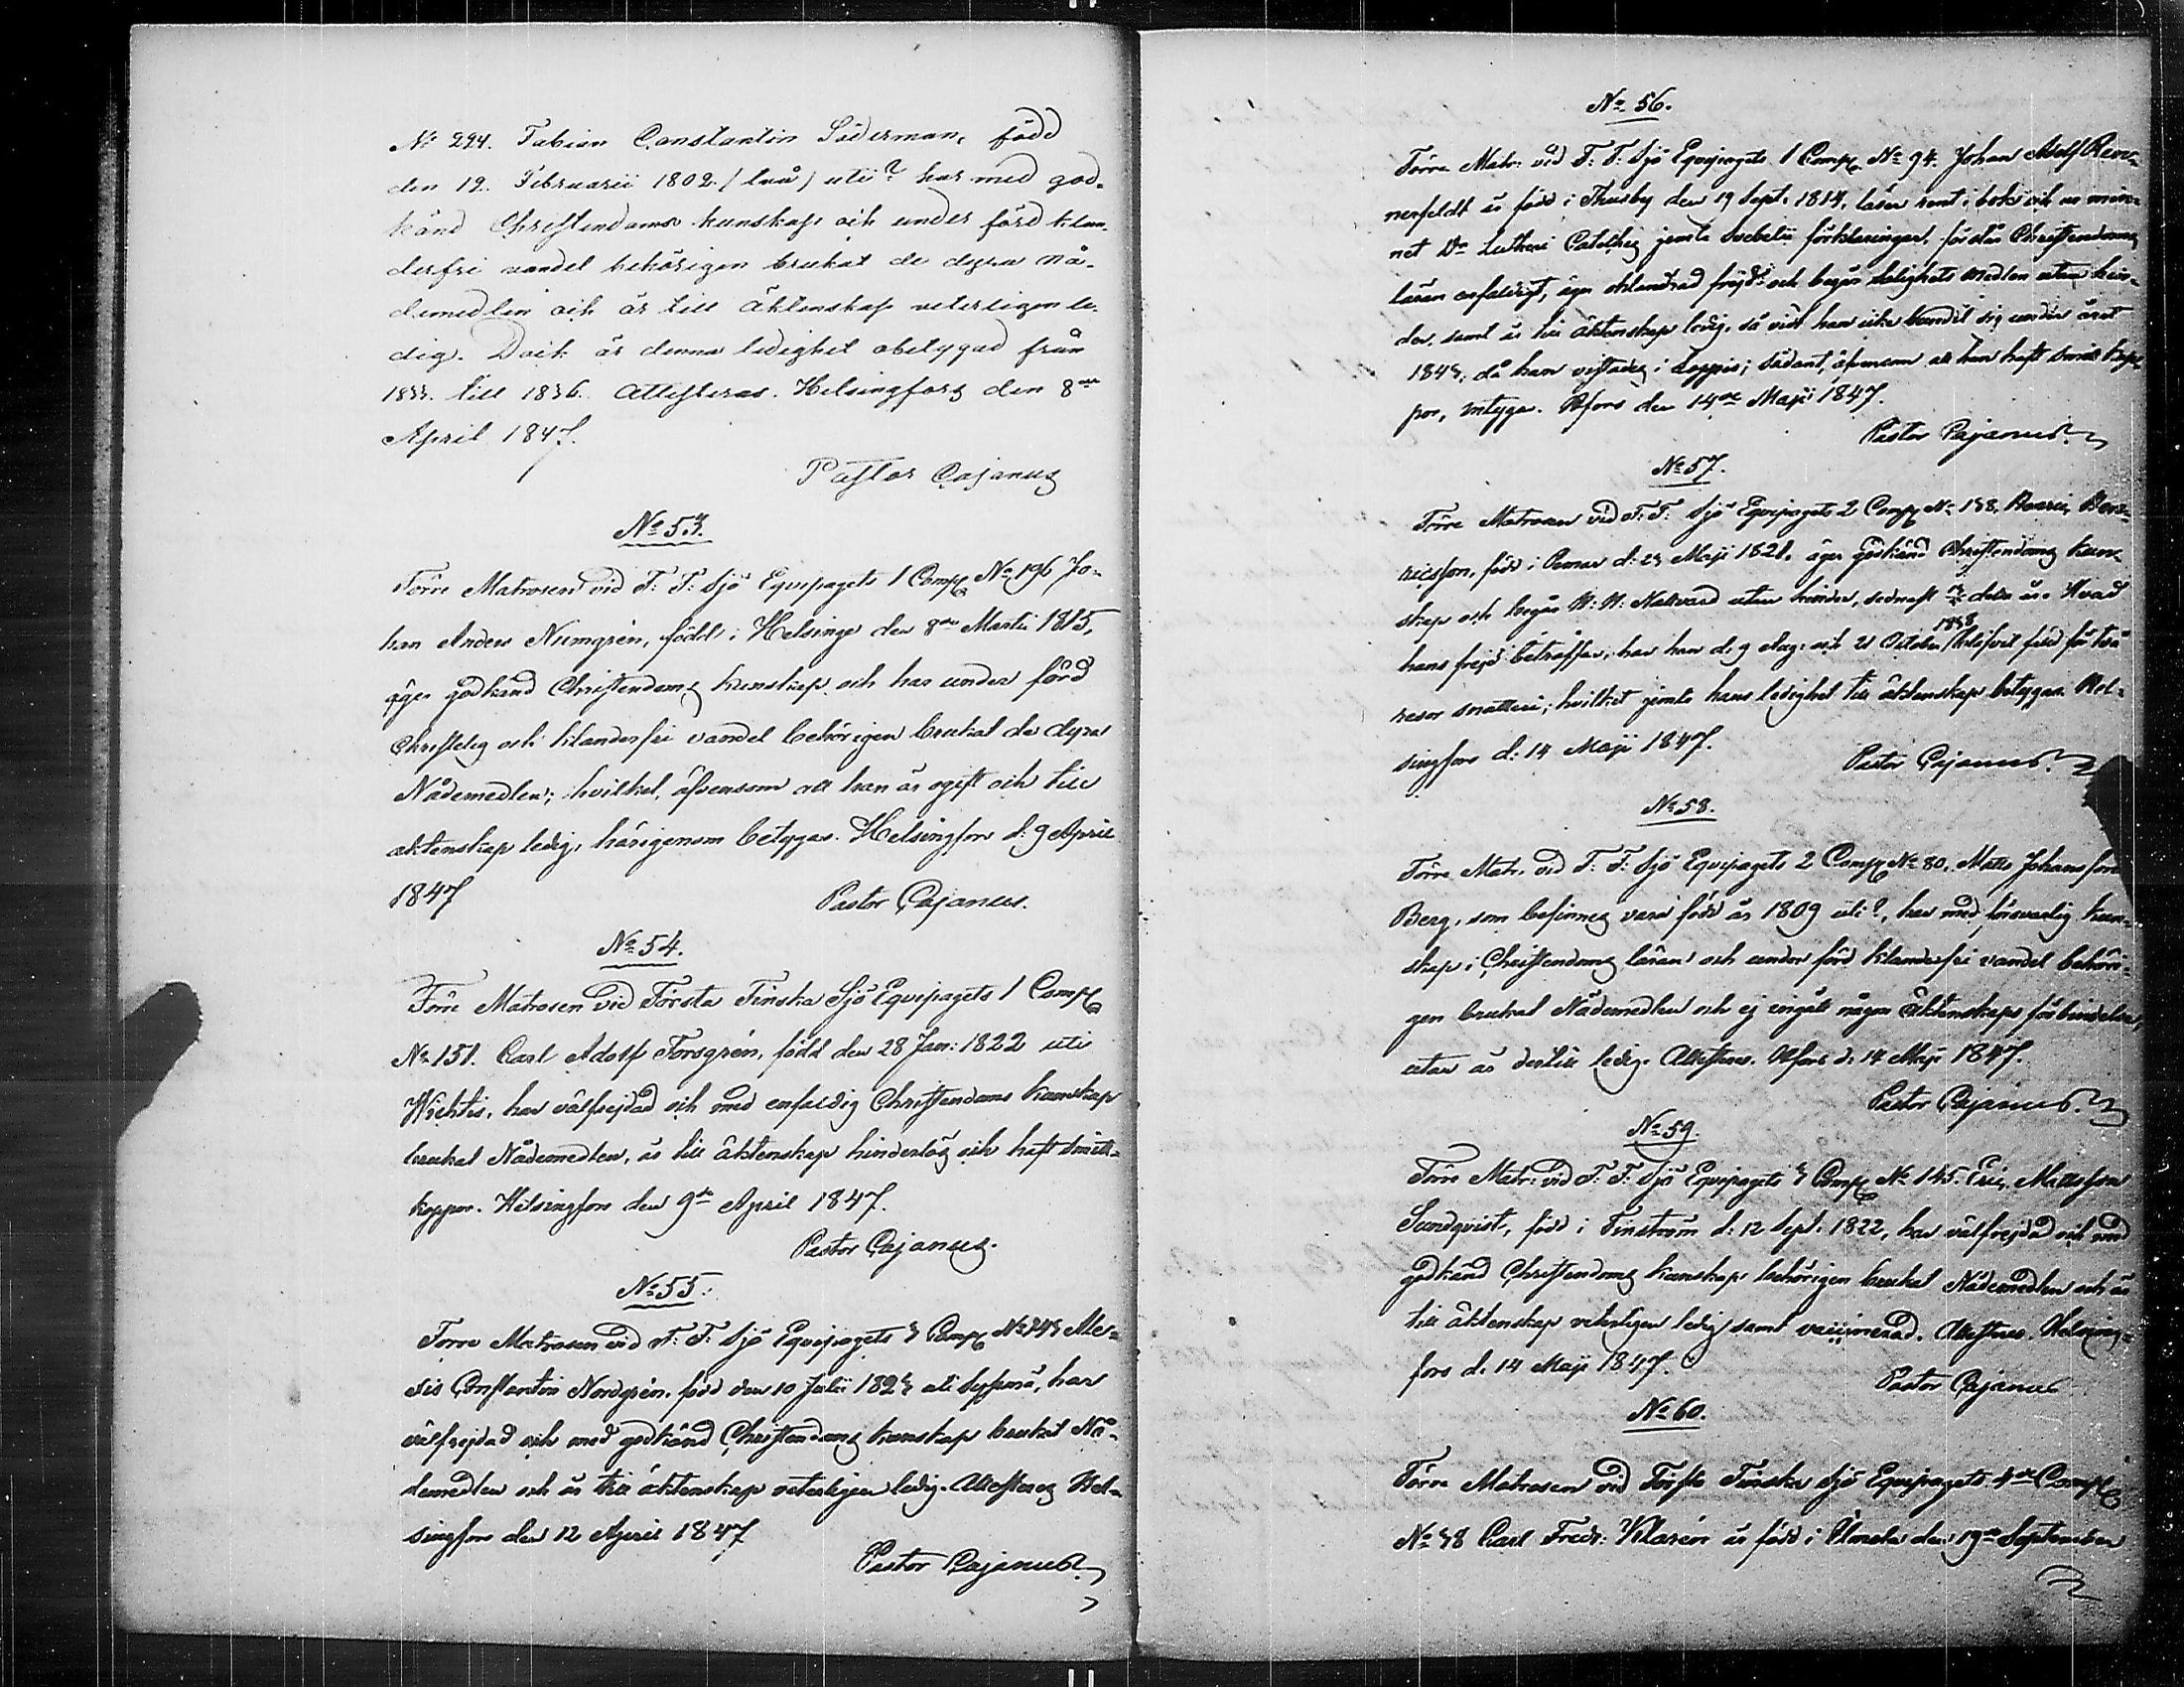 No 224. Fabian Constantin Söderman, född
den 12. Februarii 1802 /två/ uti? har med god-
känd Christendoms kunskap och under förd klan-
derfri vandel behörigen brukat de dyra nå-
demedlen och är till äktenskap veterligen le-
dig. Dock är denna ledighet obetygad från
1833. till 1836. Attesteras. Helsingfors den 8de
April 1847.
Pastor Cajanus
No 53.
Förre Matrosen vid F: F: Sjö Equipagets 1 Comp No 196 Jo-
han Anders Numgrén, född i Helsinge den 8de Martii 1815,
äger godkänd Christendoms kunskap och har under förd
Christelig och klanderfri vandel behörigen brukat de dyra
Nådemedlen; hvilket, äfvensom att han är ogift och till
äktenskap ledig, härigenom betygas. Helsingfors d: 9 April
1847
Pastor Cajanus.
No 54.
Förre Matrosen vid Första Finska Sjö Equipagets 1 Comp
No 151. Carl Adolf Forsgrén, född den 28 Jan: 1822 uti
Wichtis, har välfrejdad och med enfaldig Christendoms kunskap
brukat Nådemedlen, är till äktenskap hinderlös och haft smitt-
koppor. Helsingfors den 9de April 1847.
Pastor Cajanus.
No 55.
Förre Matrosen vid F: F: Sjö Equipagets 3 Comp No 243 Ale-
xis Constantin Nordgrén, född den 10 Julii 1823 uti, har
välfrejdad och med godkänd Christendoms kunskap brukat Nå-
demedlen och är till äktenskap veterligen ledig. Attesteras Hel-
singfors den 12 April 1847
Pastor Cajanus.
No 56.
Förre Matr: vid F: F: Sjö Equipagets 1 Comp No 94. Johan Adolf Ren-
nerfeldt är född i Thusby den 19 Sept. 1814, läser rent i bok och ur min-
net Dr Lutheri Catechis jemte Svebelii förklaringar, förstår Christendoms
läran enfaldigt, äger oklandrad frejd och begår salighets medlen utan hin-
der, samt är till äktenskap ledig, så vidt han icke bundit sig under året
1843, då han vistades i Loppis; sådant, äfvensom att han haft smitt kop-
por, intygar. Hfors den 14de Maji 1847.
Pastor Cajanus.
No 57.
Förre Matrosen vid F: F: Sjö Equipagets 2 Comp No 138, Henric Hen-
ricsson, född i Pemar d: 23 Maji 1821. äger godkänd Christendoms kun-
skap och begår H: H: Nattvard utan hinder, sednast detta år. Hvad
hans frejd beträffar, har han d. 9 Aug. och 21 October 1838 blifvit fälld för två
resor snatteri; hvilket jemte hans ledighet till äktenskap betygas. Hel-
singfors d: 14 Maji 1847.
Pastor Cajanus.
No 58.
Förre Matr. vid F: F: Sjö Equipagets 2 Comp No 80, Matts Johansson
Berg, som befinnes vara född år 1809 uti?, har med försvarlig kun-
skap i Christendoms läran och under förd klanderfri vandel behöri-
gen brukat Nådemedlen och ej ingått någon äktenskaps förbindelse,
utan är dertill ledig. Attesteras. Hfors d: 14 Maji 1847.
Pastor Cajanus.
No 59.
Förre Matr: vid F: F: Sjö Equipagets 3 Comp No 145. Eric Mattsson
Sundqvist, född i Finström d: 12 Sept. 1822, har välfrejdad och med
godkänd Christendoms kunskap behörigen brukat Nådemedlen och är
till äktenskap veterligen ledig samt vaccinerad. Attesteras. Helsing-
fors d. 14 Maji 1847.
Pastor Cajanus
No 60.
Förre Matrosen vid Första Finska Sjö Equipagets 4de Comp
No 38 Carl Fredr: Klarén är född i den 19de September